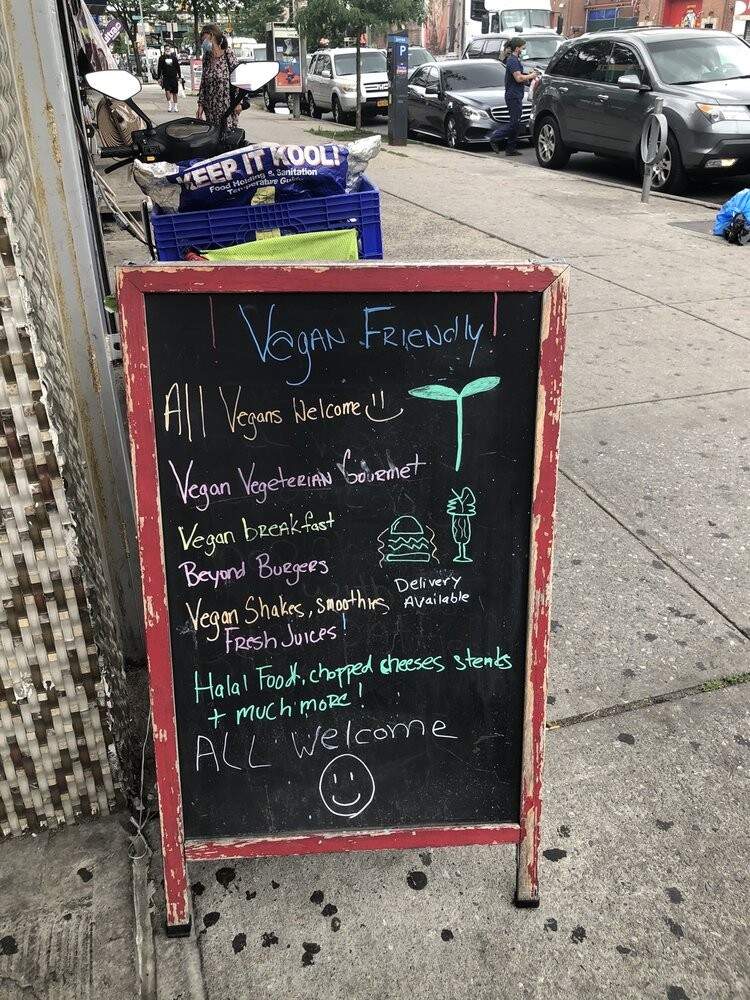 KEEP IT KOOL!
Food Holding & Sanitation
P
Vegan Friendly!
All Vegans Welcome!!
Vegan VegeteriAN Gourmet
Vegan breakfast
Beyond Burgers
Delivery
Available
Vegan Shakes, smoothies
Fresh Juices!
Halal Food, chopped cheeses
+ much more!
ALL Welcome